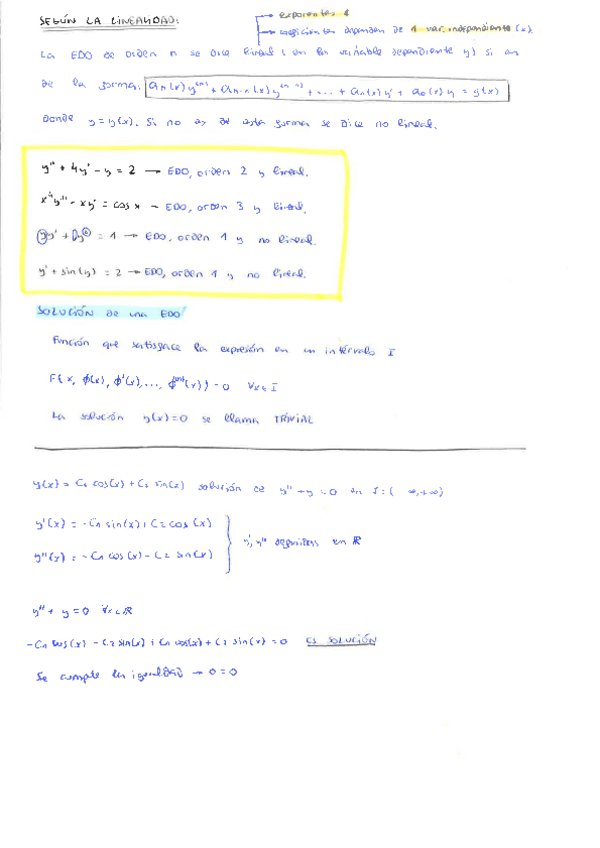 SEGÚN LA LINEALIDAD:
→ exponentes 1
→ coeficientes dependen de 1 var. independiente (x)
La EDO de orden n se dice lineal (en la variable dependiente y) si es
de la forma: aₙ(x)y⁽ⁿ⁾ + aₙ₋₁(x)y⁽ⁿ⁻¹⁾ + ... + a₁(x)y' + a₀(x)y = g(x)
donde y = y(x). Si no es de esta forma se dice no lineal.
y'' + 4y' - y = 2 → EDO, orden 2 y lineal.
x⁴y''' - xy' = cos x → EDO, orden 3 y lineal.
= 1 → EDO, orden 1 y no lineal.
y' + sin(y) = 2 → EDO, orden 1 y no lineal.
SOLUCIÓN de una EDO
Función que satisface la expresión en un intervalo I
F(x, ϕ(x), ϕ'(x), ..., ϕ⁽ⁿ⁾(x)) = 0 ∀x ∈ I
La solución y(x)=0 se llama TRIVIAL
y(x) = C₁ cos(x) + C₂ sin(x) solución de y'' + y = 0 en I = ( ∞, +∞)
y'(x) = -C₁ sin(x) + C₂ cos(x)
y', y'' definidas en ℝ
y''(x) = -C₁ cos(x) - C₂ sin(x)
y'' + y = 0 ∀x ∈ ℝ
-C₁ cos(x) - C₂ sin(x) + C₁ cos(x) + C₂ sin(x) = 0 ES SOLUCIÓN
Se cumple la igualdad → 0=0